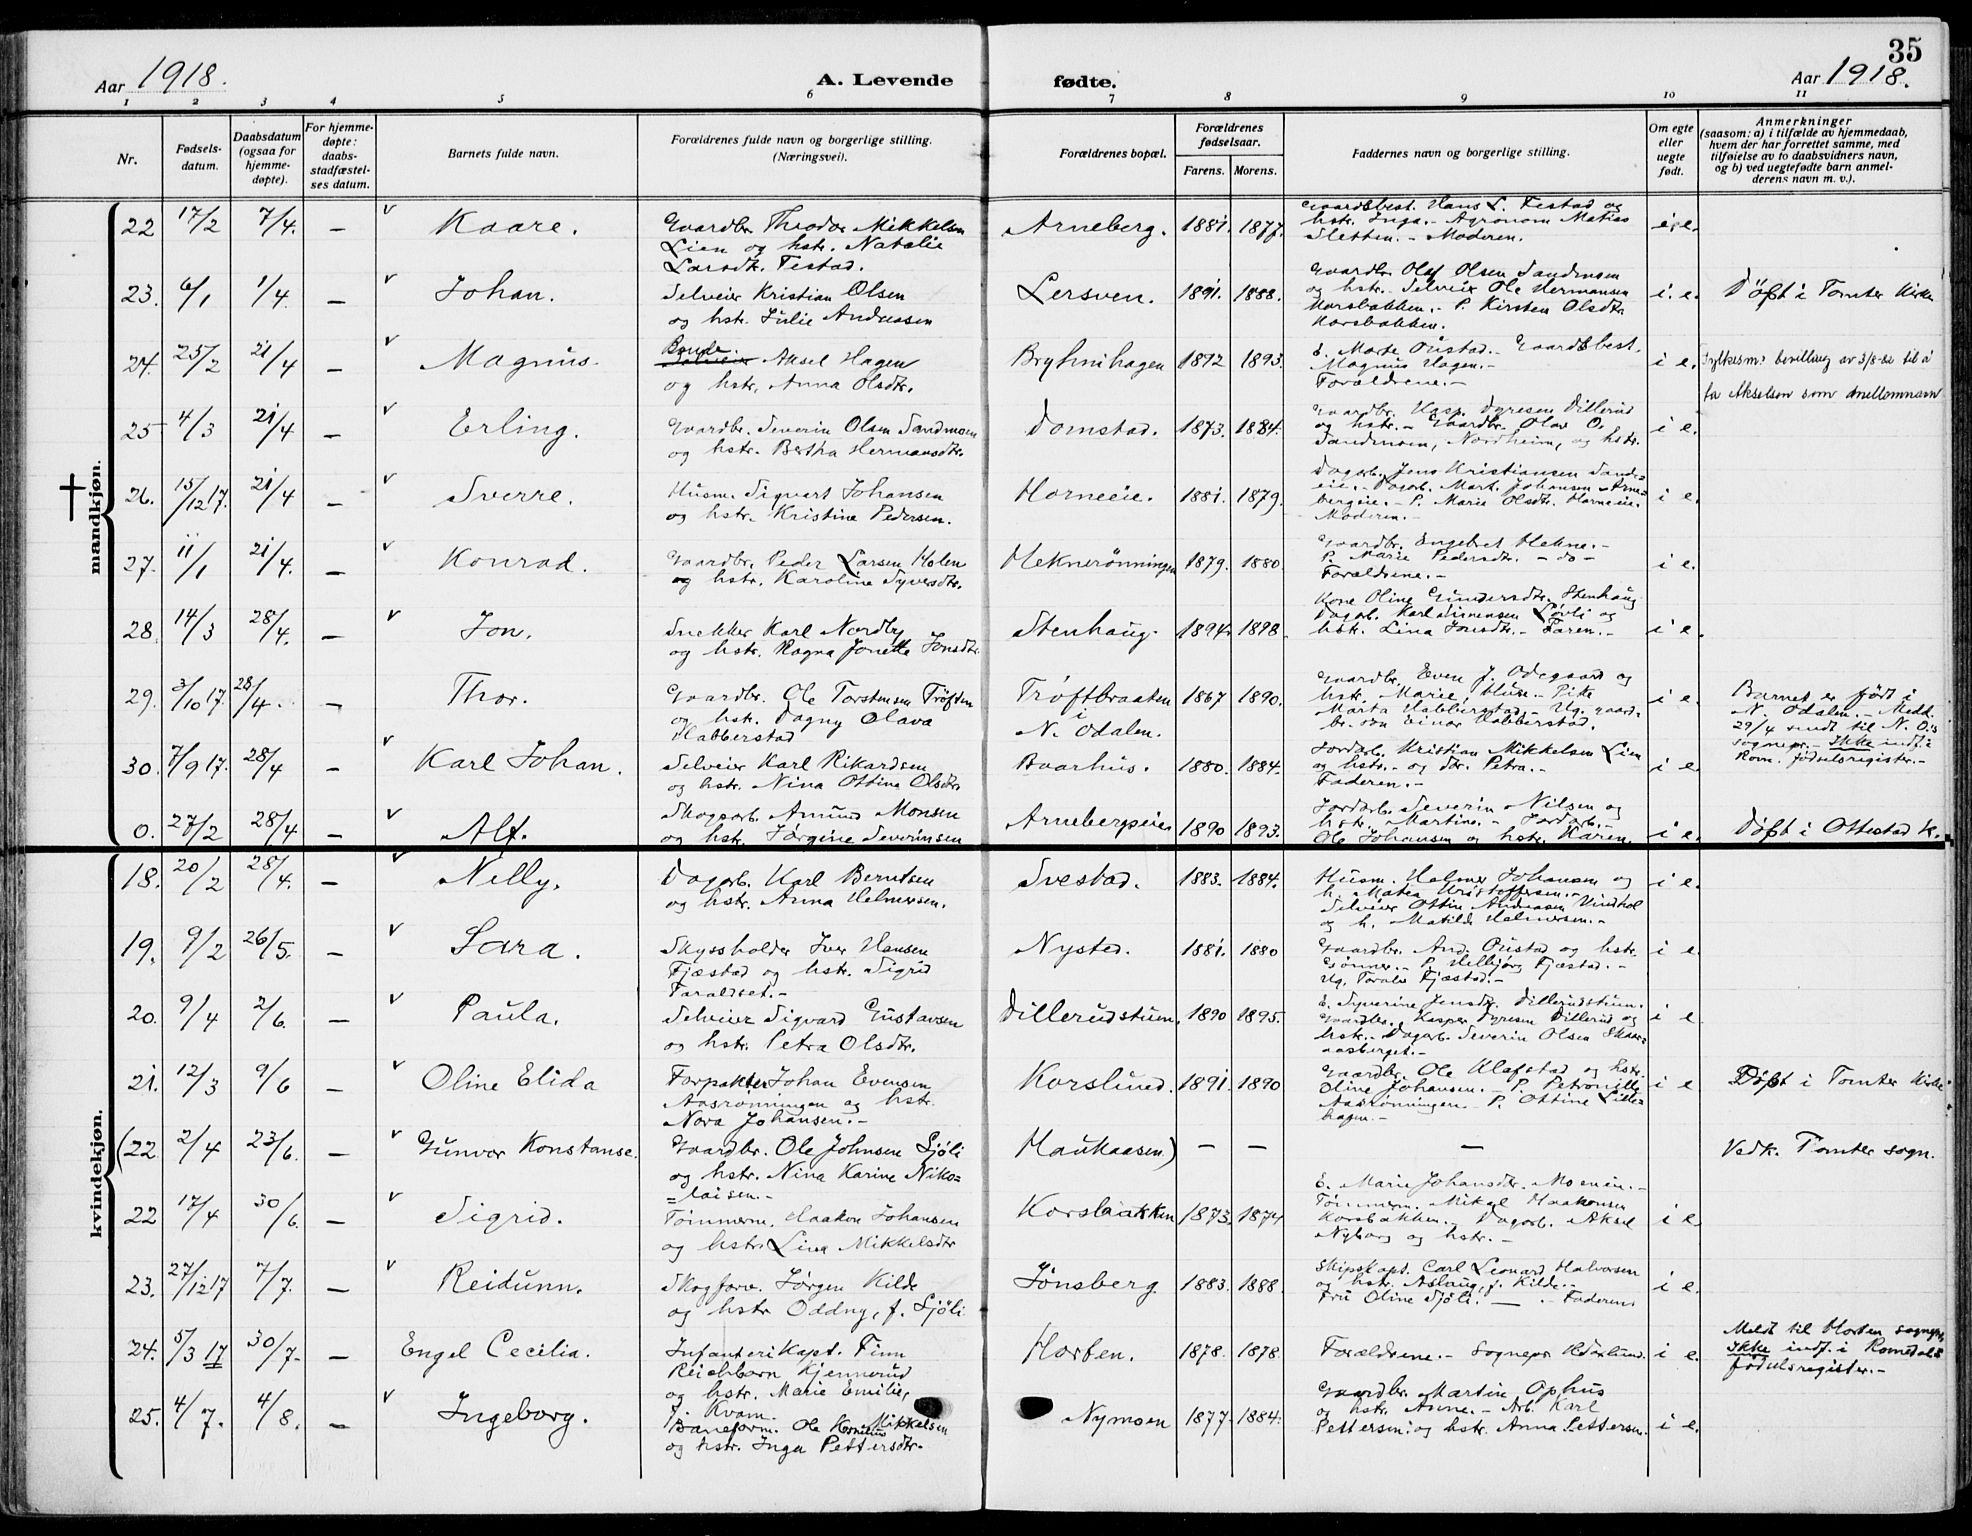 35
Aar 1918.
A. Levende
fødte.
Aar 1918.
1 2 3 4 5 6 7 8 9 10 11
Nr.
Fødsels-
datum.
Daabsdatum
(ogsaa for
hjemme-
døpte).
For hjemme-
døpte:
daabs-
stadfæstel-
ses datum.
Barnets fulde navn.
Forældrenes fulde navn og borgerlige stilling.
(Næringsvei).
Forældrenes bopæl.
Forældrenes
fødselsaar.
Farens. Morens.
Faddernes navn og borgerlige stilling.
Om egte
eller
uegte
født.
Anmerkninger
(saasom: a) i tilfælde av hjemmedaab,
hvem der har forrettet samme, med
tilføielse av to daabsvidners navn,
og b) ved uegtefødte barn anmel-
derens navn m. v.).
mandkjøn.
22 17/2 7/4. – Kaare.
Gaardbr. Theodor Mikkelsen
Lien og hstr. Natalie
Larsdt. Festad.
Arneberg. 1881. 1877.
Gaardsbest. Hans L. Festad og
hstr. Inga. – Agronom Matias
Sletten. – Moderen.
i e.
23. 6/1 1/4. – Johan.
Selveier Kristian Olsen
og hstr. Julie Andreasen
Lersven. 1891. 1888.
Gaardbr. Olaf Olsen Sandmoen
og hstr. – Selveier Ole Hermansen
Korsbakken. – P. Kirsten Olsdtr.
Korsbakken.
i. e.
Døpt i Tomter Kirke
24. 25/2 21/4 – Magnus.
Bonde.
Selveier Aksel Hagen
og hstr. Anna Olsdtr.
Bryhnihagen 1892 1893.
E. Marte Oustad. – Gaardsbest.
Magnus Hagen. –
Forældrene. –
i e.
Fylkesm. bevilling av 3/8-82 til å
ta Akselsen som mellomnavn
25 4/3 21/4 – Erling.
Gaardbr. Severin Olsen Sandmoen
og hstr. Bertha Hermansdtr.
Domstad. 1873. 1884.
Gaardbr. Kasp. Dyresen Dillerud
og hstr. – Gaardbr. Olav O.
Sandmoen, Nordheim, og hstr.
i e.
26. 15/12 17. 21/4 – Sverre.
Husm. Sigvart Johansen
og hstr. Kristine Pedersen.
Horneeie. 1881. 1879.
Dagarb. Jens Kristiansen Sande=
eie. – Dagarb. Mart. Johansen Arne=
bergeie. – P. Marie Olsdtr. Horneeie.
Moderen. –
i e.
27. 11/1 21/4. – Konrad.
Gaardbr. Peder Larsen Holen
og hstr. Karoline Syversdtr.
Heknerønningen 1879. 1880
Gaardbr. Engebret Hekne. –
P. Marie Pedersdtr. – do –
Forældrene. –
i e.
28. 14/3 28/4. – Jon.
Snekker Karl Nordby
og hstr. Ragna Jonette Jonsdtr.
Stenhaug. 1894. 1898.
Kone Oline Gundersdtr. Stenhaug
Dagarb. Karl Simensen Løvli og
hstr. Lina Jonsdtr. – Faren. –
i e.
29. 3/10 17. 28/4. – Thor.
Gaardbr. Ole Torstensen Trøften
og hstr. Dagny Olava
Habberstad
Trøftbraaten
i
N. Odalen.
1867 1890.
Gaardbr. Even J. Odegaard og
hstr. Marie, Huse. – Pike
Marta Habberstad. – Ug. gaard-
br. søn Einar Habberstad.
i e
Barnet er født i
N. Odalen. – Medd.
29/4 sendt til N. O.s
sognepr. – Ikke indf. i
Rom. fødselsregister. –
30. 7/9 17. 28/4 – Karl Johan.
Selveier Karl Rikardsen
og hstr. Nina Ottina Olsdtr.
Baarhus. 1880. 1884.
Jordarb. Kristian Mikkelsen Lien
og hstr. – og dtr. Petra. –
Faderen. –
i e
0. 27/2 28/4 – Alf.
Skogsarb. Amund Monsen
og hstr. Jørgine Severinsen
Arnebergeie 1890 1893.
Jordarb. Severin Nilsen og
hstr. Martine. – Jordarb.
Ole Johansen og hstr. Karen.
i e.
Døpt i Ottestad K.
kvindekjøn.
18. 20/2 28/4. – Nelly.
Dagarb. Karl Berntsen
og hstr. Anna Helmersen.
Svestad. 1883. 1884.
Husm. Helmer Johansen og
h. Matea Kristoffersen. –
Selveier Ottin Andreasen Vindhol
og h. Matilde Helmersen. –
i e.
19. 9/2 26/5. – Sara.
Skyssholder Iver Hansen
Fjæstad og hstr. Sigrid
Faraldset. –
Nysted. 1881. 1880
Gaardbr. And. Oustad og hstr.
Gønner. – P. Helbjørg Fjæstad. –
Ug. Toralv Fjæstad. –
i e
20. 9/4 2/6. – Paula.
Selveier Sigvard Gustavsen
og hstr. Petra Olsdtr.
Dillerudstuen. 1890 1895.
E. Syverine Jensdtr. Dillerudstuen.
Gaardbr. Kasper Dyresen Dillerud og
hstr. – Dagarb. Severin Olsen Skaar=
aasberget. –
i e
21. 12/3 9/6 – Oline Elida
Forpakter Johan Evensen
Aasrønningen og hstr.
Nora Johansen. –
Korslund. 1891. 1890
Gaardbr. Ole Ulafstad og hstr.
Oline Johansen. – P. Petronille
Aasrønningen. – P. Ottine Lille=
hagen. –
i e
Døpt i Tomter Kirke
(22 2/4 23/6. – Gunvor Konstanse.
Gaardbr. Ole Johnsen Sjøli
og hstr. Nina Karine Niko=
=laisen. –
Haukaasen) – – –
Vedk. Tomter sogn.
22 17/4 30/6. – Sigrid.
Tømmerm. Haakon Johansen
og hstr. Lina Mikkelsdtr
Korsbakken 1873. 1874
E. Marie Johansdtr. Moenin. –
Tømmerm. Mikal Haakonsen
Korsbakken. – Dagarb. Aksel
Nyborg og hstr. –
i e
23. 27/12 17 7/7. – Reidunn.
Skogforv. Jørgen Kilde
og hstr Oddny, f. Sjøli
Jønsberg 1883. 1888.
Skipskapt. Carl Leonard Halvorsen
og hstr. Aslaug, f. Kilde. –
Fru Oline Sjøli. – – Faderen.
i e.
24. 5/3 17 30/7. – Engel Cecilia.
Infanterikapt. Finn
Reichborn Kjennerud
og hstr. Marie Emilie,
f. Kvam.
Horten. 1878. 1878
Forældrene. – Sognepr.
i e.
Meldt til Horten sognepr.
Ikke indf. i Romedals
fødselsregister. –
25. 4/7. 4/8. – Ingeborg.
Baneform. Ole Kornelius Mikkelsen
og hstr. Inga Pettersdtr.
Nymoen 1877. 1884.
Gaardbr. Martin Ophus
og hstr. Anne. – Arb. Karl
Pettersen og hstr. Anna Pettersen.
i e.